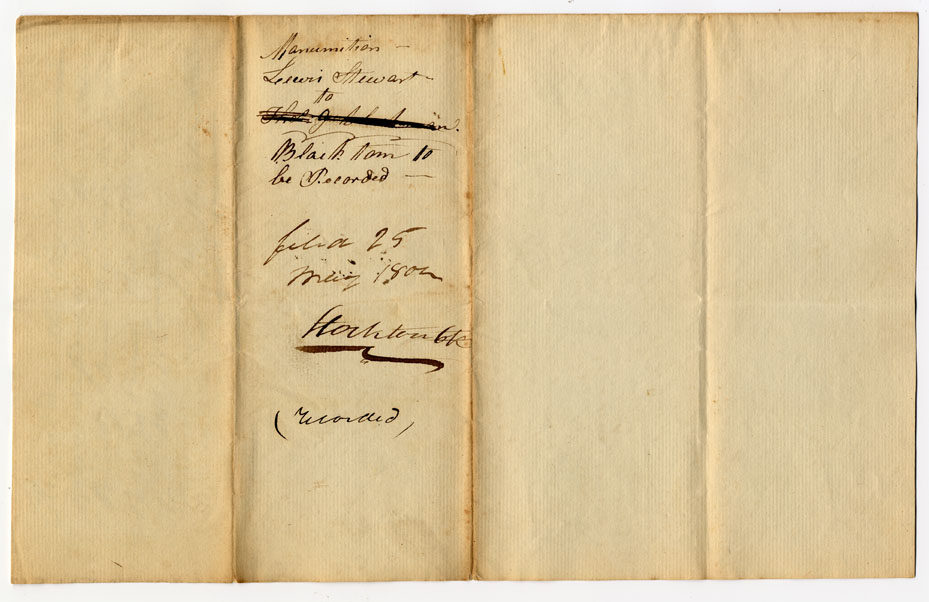 Manumition —
Leewis Stewart —
to
Black Tom to
be Recorded —
filed 25
May 1802
Stockton Clk
(recorded)